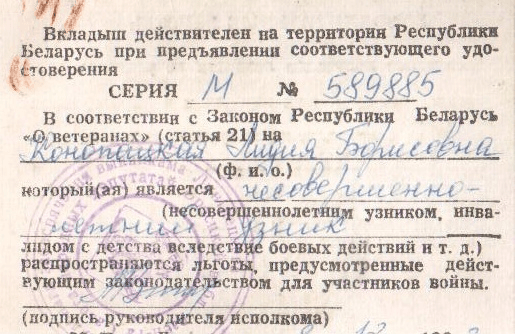 Вкладыш действителен на территории Республики
Беларусь при предъявлении соответствующего удо-
стоверения
СЕРИЯ М № 589885
В соответствии с Законом Республики Беларусь
«О ветеранах» (статья 21) на
Конопацкия Лидия Борисовна
(ф. и. о.)
который(ая) является несовершенно-
(несовершеннолетним узником, инва-
летний узник
лидом с детства вследствие боевых действий и т. д.)
распространяются льготы, предусмотренные дейст-
вующим законодательством для участников войны.
(подпись руководителя исполкома)